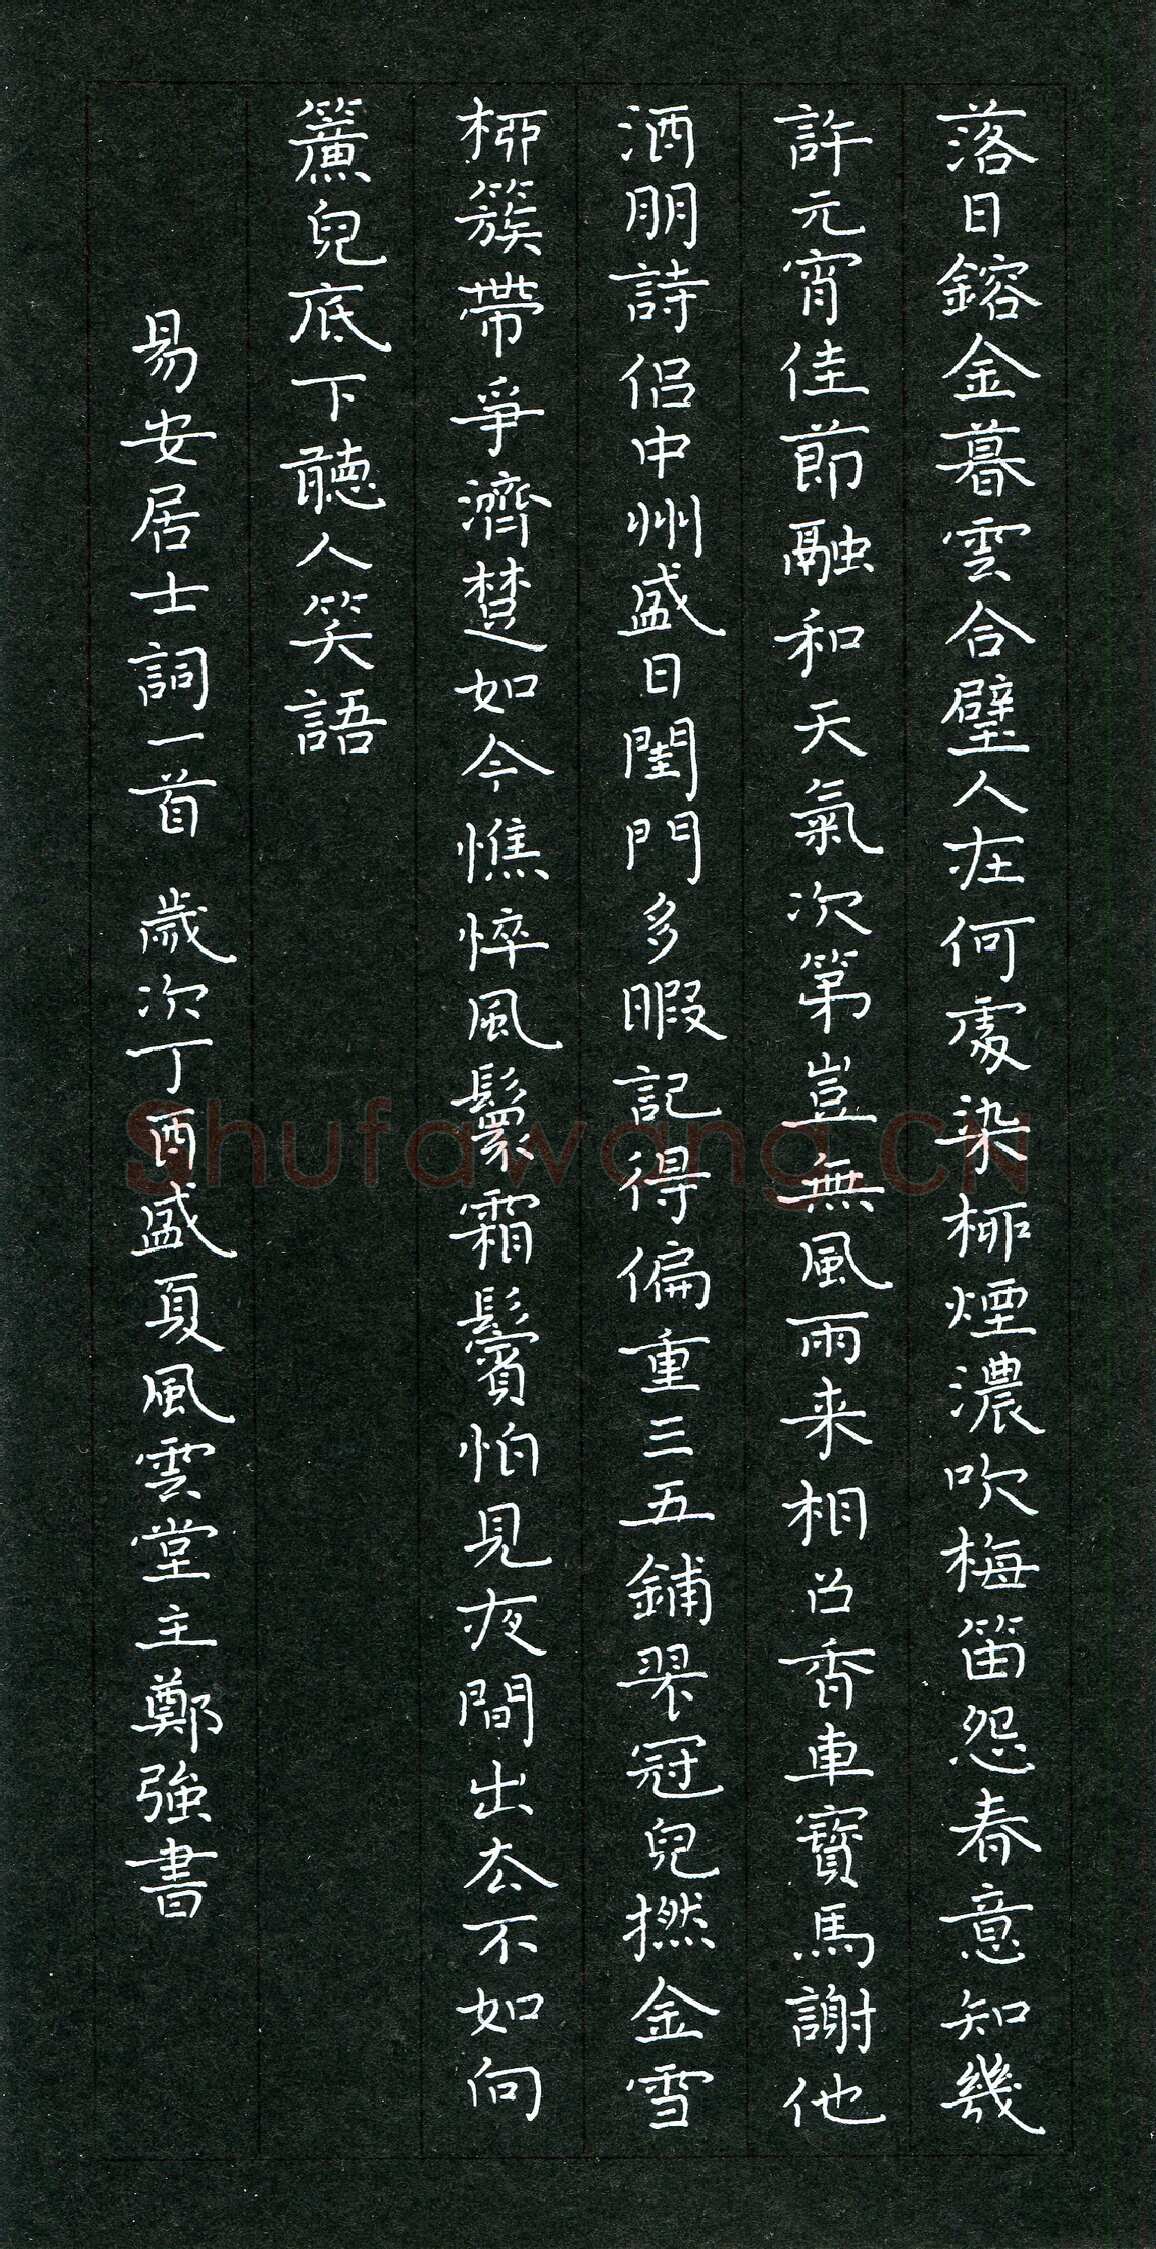 落日鎔金暮雲合璧人在何處染柳煙濃吹梅笛怨春意知幾
許元宵佳節融和天氣次第豈無風雨来相召香車寶馬謝他
酒朋詩侶中州盛日閨門多暇記得偏重三五鋪翠冠兒撚金雪
柳簇帶爭濟楚如今憔悴風鬟霜鬢怕見夜間出去不如向
簾兒底下聽人笑語
易安居士詞一首 歲次丁酉盛夏風雲堂主鄭強書
Shufawang.CN